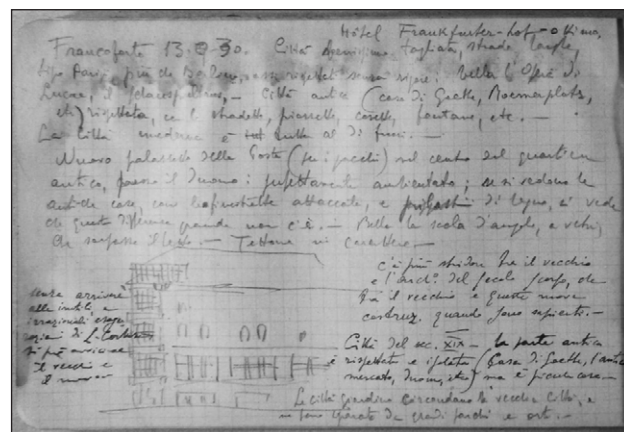 Hôtel Frankfurter-hof – ottimo.
Francoforte 13.9.30. Città modernissima, tagliata, strade larghe,
tipo Parigi più che Berlino, assi rispettati senza rigore: bella l'Opera di
Lucae, il – Città antica (casa di Goethe, Roemerplatz,
etc.) rispettata, con le stradette, piazzette, casette, fontane, etc. –
La città moderna è tutta al di fuori. –
Nuovo palazzetto delle Poste (sei piani) nel centro del quartiere
antico, presso il Duomo: perfettamente ambientato; se si vedono le
antiche case, con le finestrelle attaccate, e di legno, si vede
che questa differenza grande non c'è. – Bella la scala d'angolo, a vetri,
che sorpassa il tetto. –
c'è più stridore tra il vecchio
e l'arch. del secolo scorso, che
tra il vecchio e queste nuove
costruz. quando sono sapienti. –
senza arrivare
alle inutili e
irrazionali esage-
razioni di
si può avvicinare
il vecchio e
il nuovo
Città del sec. XIX – la parte antica
è rispettata e isolata (Casa di Goethe, l'antico
mercato, duomo, etc.) ma è piccola cosa. –
Le città giardino circondano la vecchia città, e
ne sono separate da grandi parchi e orti. –